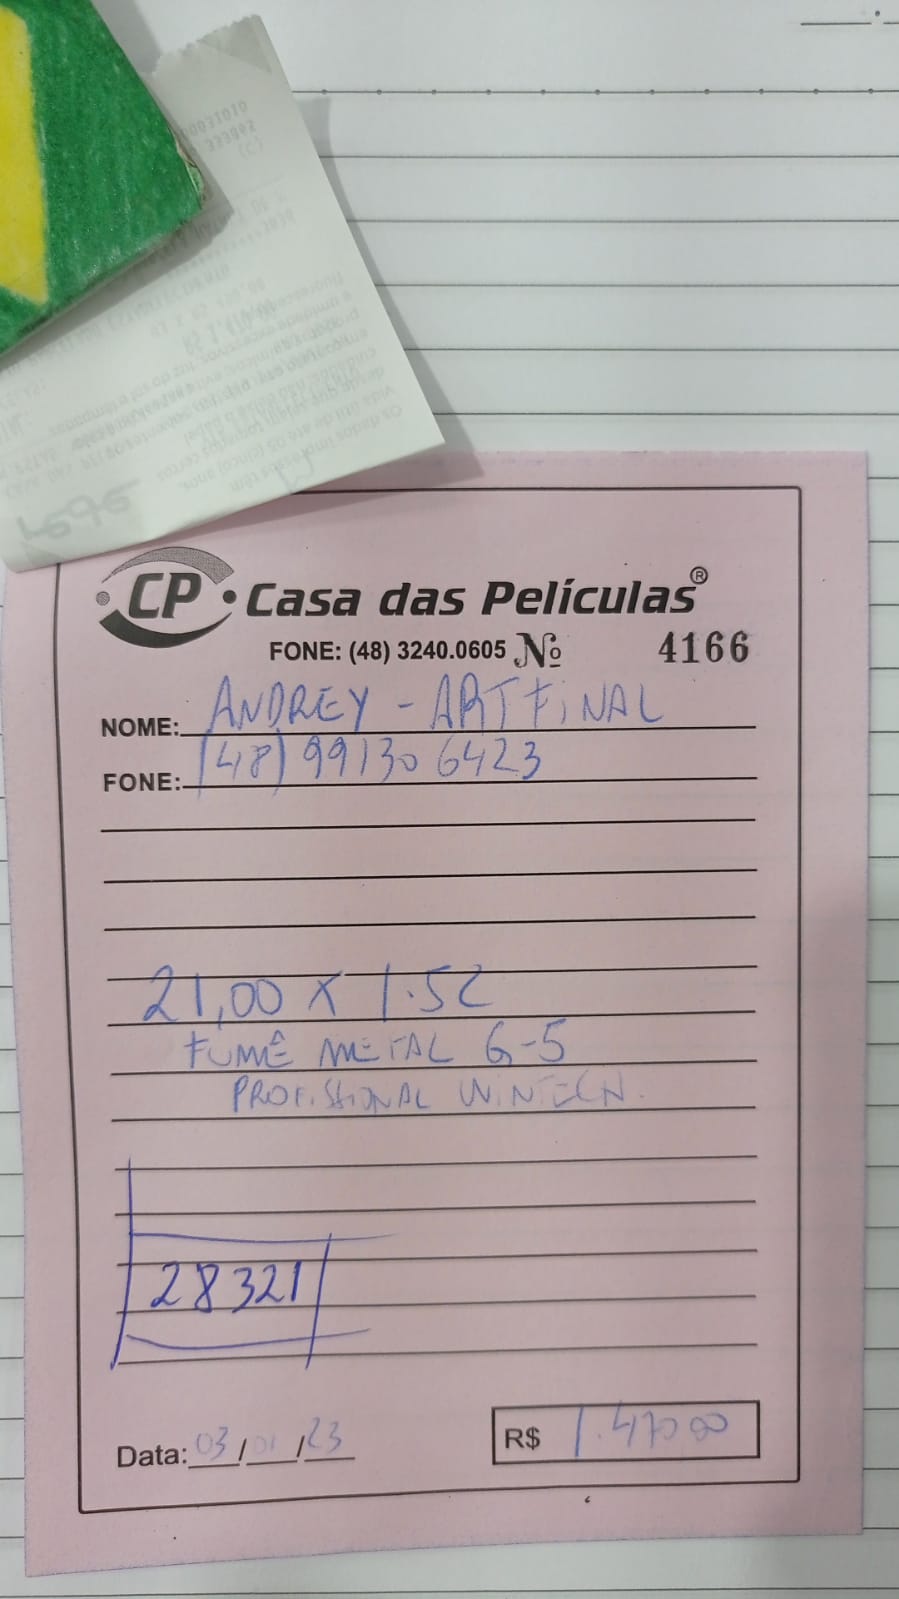 CP Casa das Películas®
FONE: (48) 3240.0605 Nº 4166
NOME: ANDREY - ART FiNAL
FONE: (48) 99130 6423
21,00 X 1.52
FUMÊ METAL G-5
PROFISSIONAL WiNTECH.
28321
Data: 03/01/23 R$ 1.470 00
rede